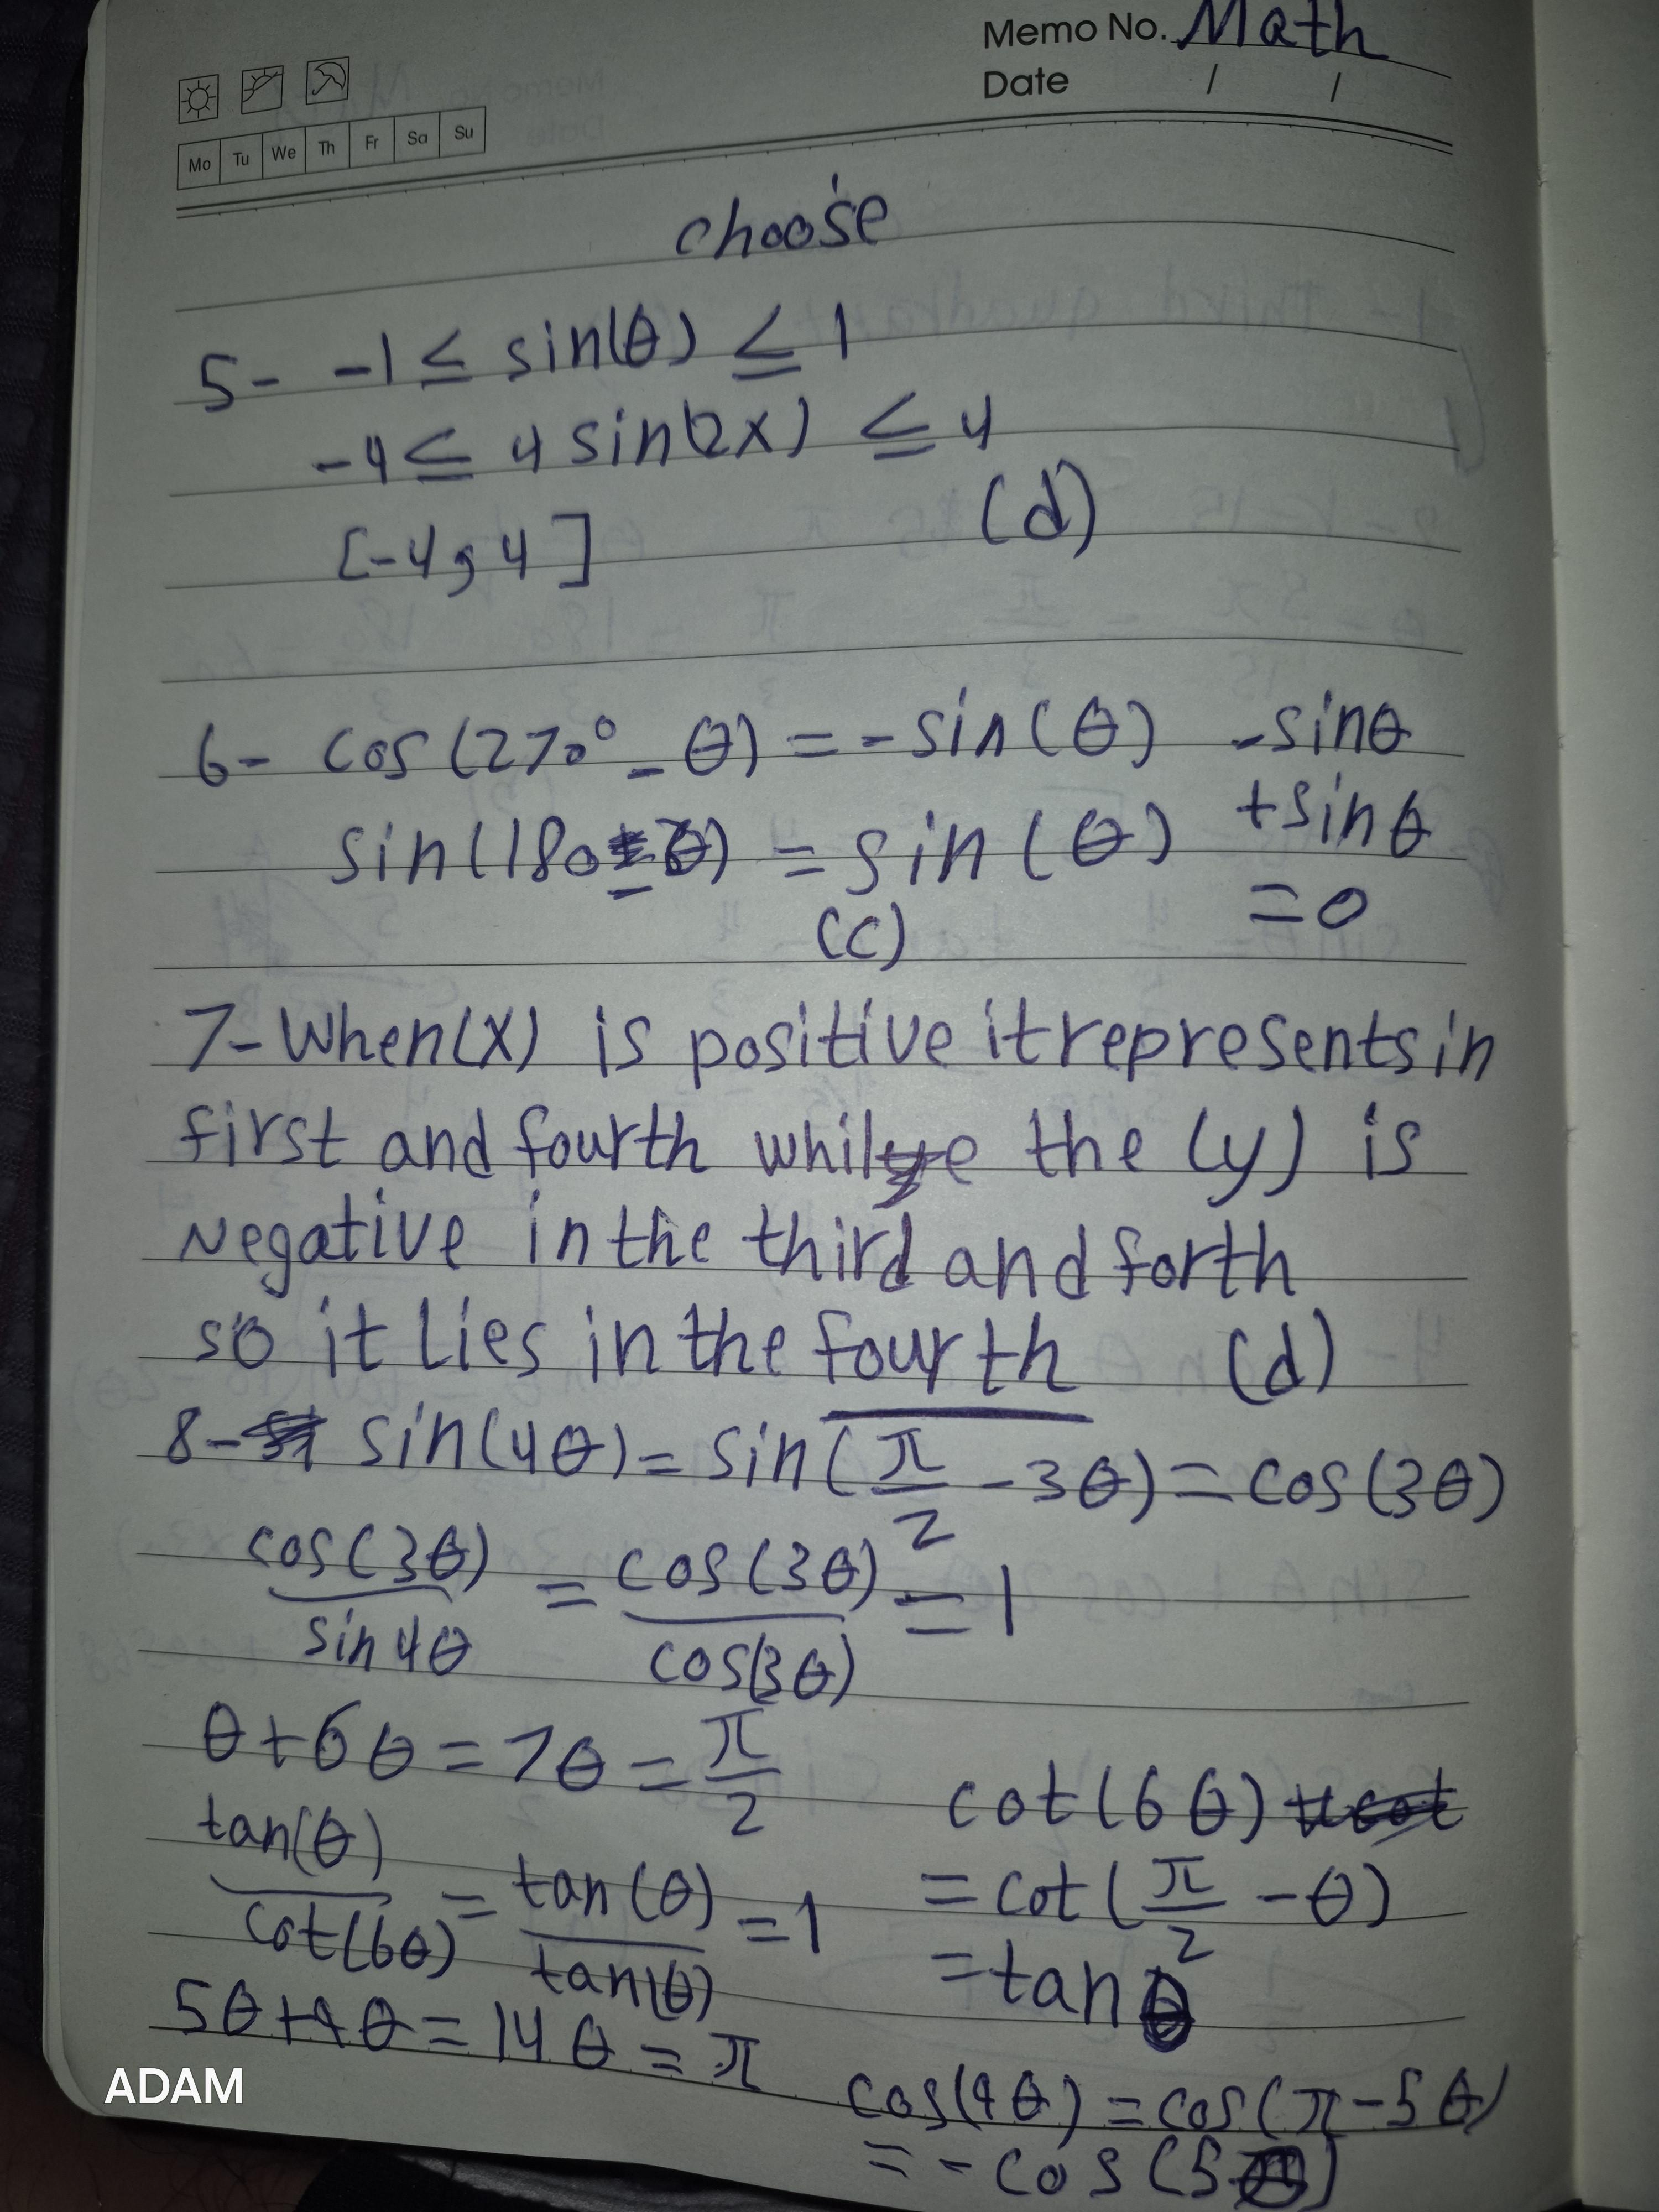 Memo No. Math
Date / /
Mo Tu We Th Fr Sa Su
choose
5- -1 ≤ sin(θ) ≤ 1
-4 ≤ 4 sin(2x) ≤ 4
[-4, 4] (d)
6- cos(270° - θ) = -sin(θ) -sinθ
sin(180 - θ) = sin(θ) +sinθ
(c) =0
7- When (x) is positive it represents in
first and fourth while the (y) is
Negative in the third and forth
so it Lies in the fourth (d)
8- sin(4θ) = sin(π/2 - 3θ) = cos(3θ)
cos(3θ)/sin4θ = cos(3θ)/cos(3θ) = 1
θ+6θ = 7θ = π/2
cot(6θ)
tan(θ)/cot(6θ) = tan(θ)/tan(θ) = 1
= cot(π/2 - θ)
= tan θ
5θ+9θ = 14θ = π
cos(9θ) = cos(π - 5θ)
= - cos(5θ)
ADAM